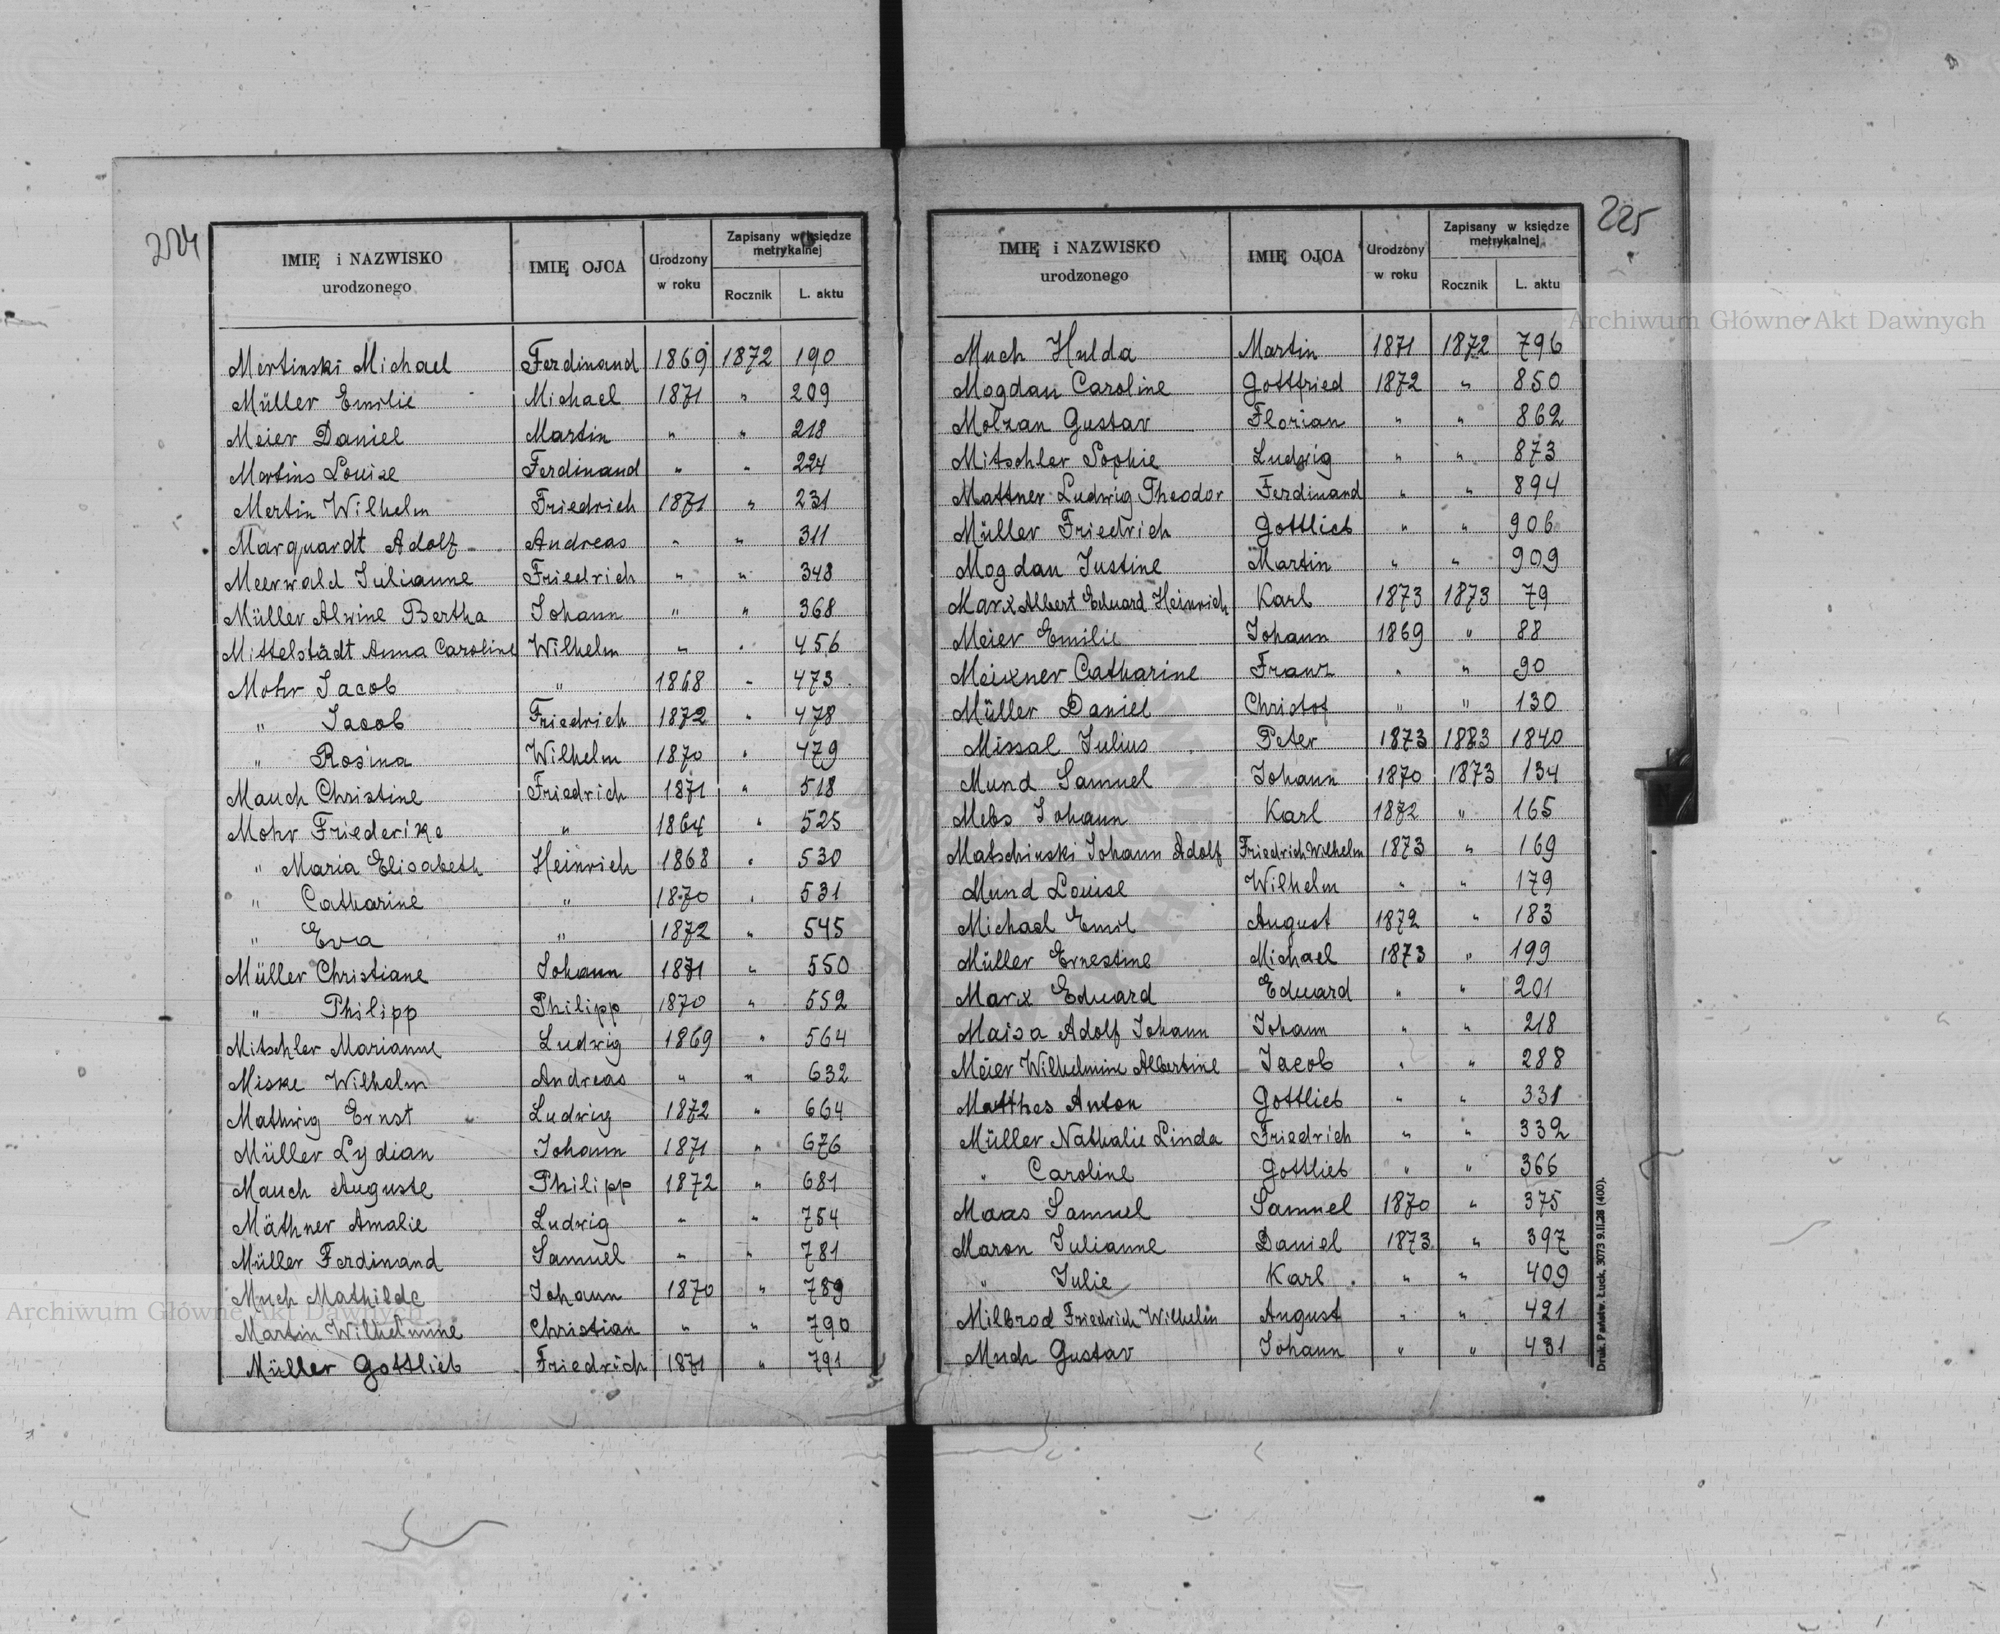 224
IMIĘ i NAZWISKO urodzonego | IMIĘ OJCA | Urodzony w roku | Zapisany w księdze metrykalnej
Rocznik | L. aktu
Mertinski Michael | Ferdinand | 1869 | 1872 | 190
Müller Emilie | Michael | 1871 | " | 209
Meier Daniel | Martin | " | " | 218
Mertins Louise | Ferdinand | " | " | 224
Mertin Wilhelm | Friedrich | 1871 | " | 231
Marquardt Adolf | Andreas | " | " | 311
Meerwald Julianne | Friedrich | " | " | 348
Müller Alwine Bertha | Johann | " | " | 368
Mittelstädt Anna Caroline | Wilhelm | " | " | 456
Mohr Jacob | " | 1868 | " | 473
" Jacob | Friedrich | 1872 | " | 478
" Rosina | Wilhelm | 1870 | " | 479
Mauch Christine | Friedrich | 1871 | " | 518
Mohr Friederike | " | 1864 | " | 525
" Maria Elisabeth | Heinrich | 1868 | " | 530
" Catharine | " | 1870 | " | 531
" Eva | " | 1872 | " | 545
Müller Christiane | Johann | 1871 | " | 550
" Philipp | Philipp | 1870 | " | 552
Mitschler Marianne | Ludwig | 1869 | " | 564
Miske Wilhelm | Andreas | " | " | 632
Mathwig Ernst | Ludwig | 1872 | " | 664
Müller Lydian | Johann | 1871 | " | 676
Mauch Auguste | Philipp | 1872 | " | 681
Mäthner Amalie | Ludwig | " | " | 754
Müller Ferdinand | Samuel | " | " | 781
Much Mathilde | Johann | 1870 | " | 789
Martin Wilhelmine | Christian | " | " | 790
Müller Gottlieb | Friedrich | 1871 | " | 791
225
IMIĘ i NAZWISKO urodzonego | IMIĘ OJCA | Urodzony w roku | Zapisany w księdze metrykalnej
Rocznik | L. aktu
Much Hulda | Martin | 1871 | 1872 | 796
Mogdan Caroline | Gottfried | 1872 | " | 850
Molzan Gustav | Florian | " | " | 862
Mitschler Sophie | Ludwig | " | " | 873
Mattner Ludwig Theodor | Ferdinand | " | " | 894
Müller Friedrich | Gottlieb | " | " | 906
Mogdan Justine | Martin | " | " | 909
Marx Albert Eduard Heinrich | Karl | 1873 | 1873 | 79
Meier Emilie | Johann | 1869 | " | 88
Meixner Catharine | Franz | " | " | 90
Müller Daniel | Christof | " | " | 130
Missal Julius | Peter | 1873 | 1883 | 1840
Mund Samuel | Johann | 1870 | 1873 | 134
Mebs Johann | Karl | 1872 | " | 165
Matschinski Johann Adolf | Friedrich Wilhelm | 1873 | " | 169
Mund Louise | Wilhelm | " | " | 179
Michael Emil | August | 1872 | " | 183
Müller Ernestine | Michael | 1873 | " | 199
Marx Eduard | Eduard | " | " | 201
Maisa Adolf Johann | Johann | " | " | 218
Meier Wilhelmine Albertine | Jacob | " | " | 288
Matthes Anton | Gottlieb | " | " | 331
Müller Nathalie Linda | Friedrich | " | " | 332
" Caroline | Gottlieb | " | " | 366
Maas Samuel | Samuel | 1870 | " | 375
Maron Julianne | Daniel | 1873 | " | 397
" Julie | Karl | " | " | 409
Milbrod Friedrich Wilhelm | August | " | " | 421
Much Gustav | Johann | " | " | 431
Druk. Państw. Łuck. 3073 9.II.28 (400).
Archiwum Główne Akt Dawnych
Archiwum Główne Akt Dawnych